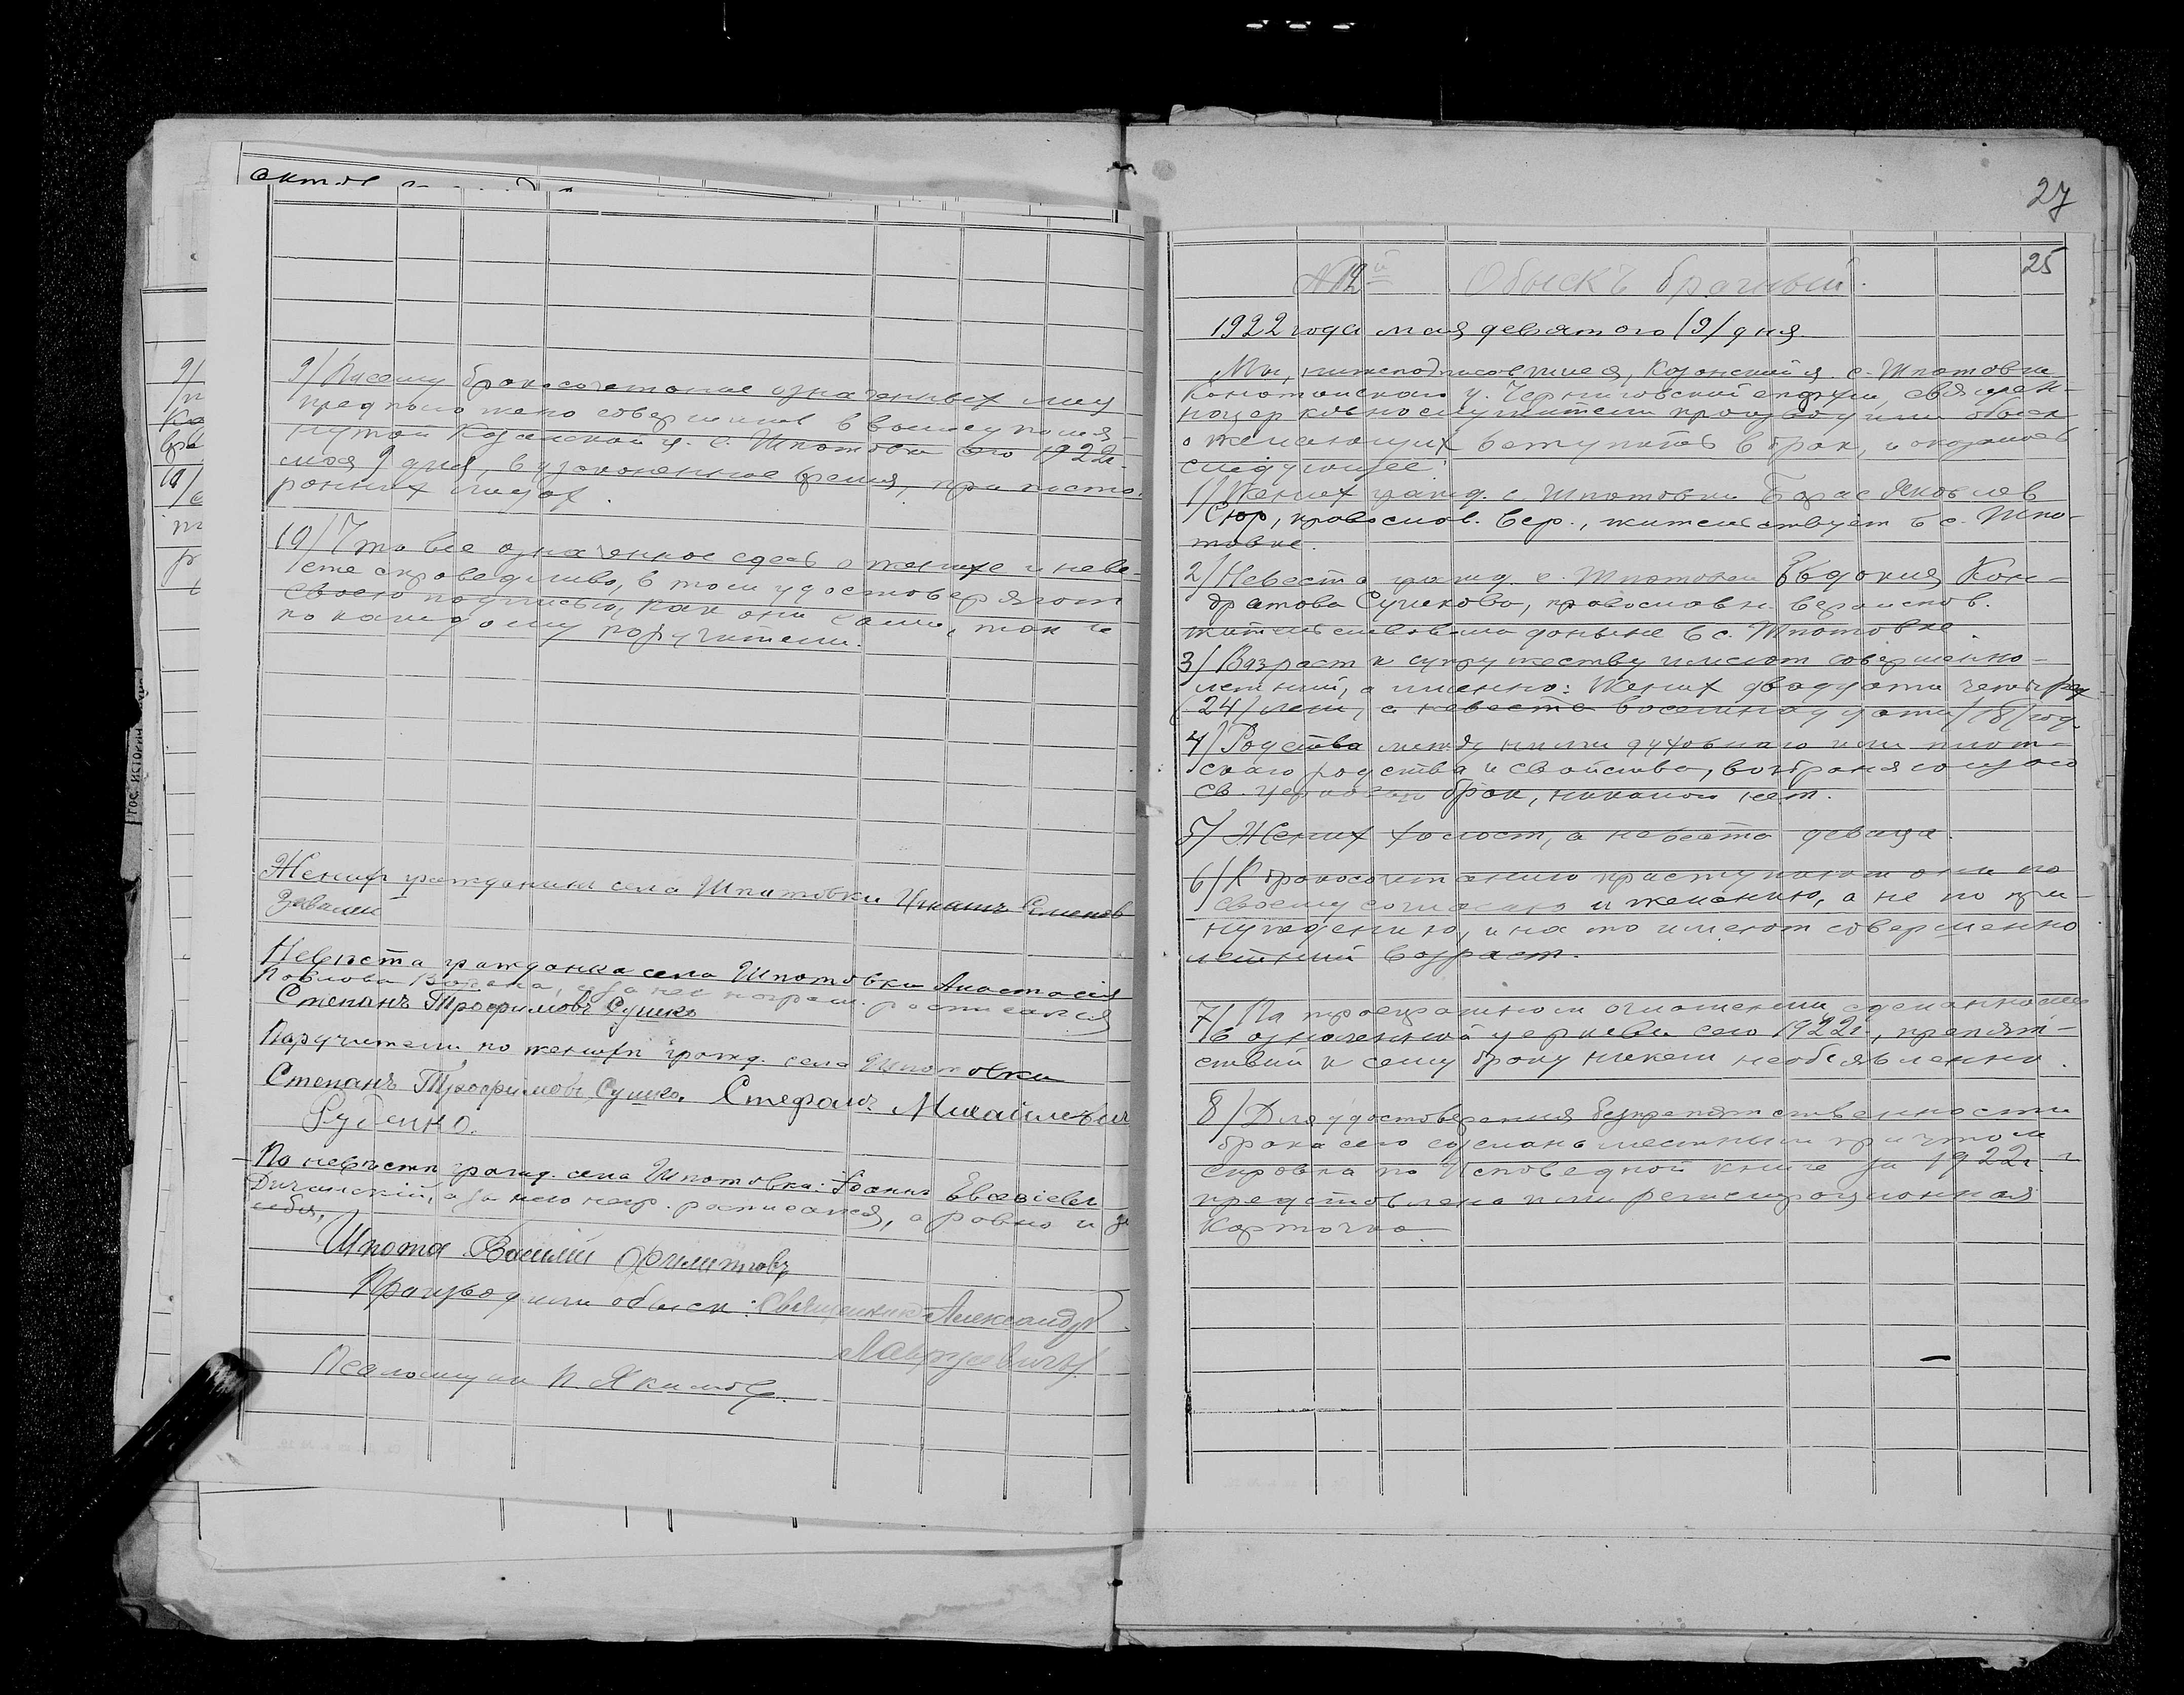 9/ К сему бракосочетание означенных лиц
предположено совершить в вышеупомя-
нутой Казанской ц. с. Шпотовки сего 1922 г.
мая 9 дня, в узаконенное время, при посто-
ронних лицах.
10/ Что все означенное здесь о женихе и неве-
сте справедливо, в том удостоверяют
своею подписью, как они сами, так и
по каждому поручители.
Жених гражданин села Шпотовки Семенов
Невеста гражданка села Шпотовки Анастасія
Павлова, а за нее неграм. расписался
Степанъ Трофимовъ Сушко
Поручители по жених гражд. села Шпотовки
Степанъ Трофимовъ Сушко. Стефанъ Михайловичъ
Руденко.
По невесте гражд. села Шпотовки: Іоаннъ Евсевіевъ
а за него негр. расписался, а равно и за
себя,
Шпота Василій Филиповъ
Производили обыск: Священникъ Александръ
Псаломщик П. Якимовъ.
27
25
№ 12й Обыскъ брачный.
1922 года мая девятого /9/ дня.
Мы, нижеподписавшиеся, Казанской ц. с. Шпотовки
Конотопского у. Черниговской епархии, священ-
ноцерковнослужители производили обыск
о желающих вступить в брак, и оказалось
следующее:
1/ Жених гражд. с. Шпотовки Борис Яковлев
Сюр, православ. вер., жительствует в с. Шпо-
товке.
2/ Невеста гражд. с. Шпотовки Евдокия Кон-
дратова Сушкова, православн. вероиспов.
жительствовала доныне в с. Шпотовке.
3/ Возраст к супружеству имеют совершенно-
летний, а именно: Жених двадцати четырех
/24/ лет, а невеста восемнадцати /18/ год.
4/ Родства между ними духовнаго или плот-
скаго родства и свойства, возбраняющаго
св. церковью брак, никакого нет.
5/ Жених холост, а невеста девица.
6/ К бракосочетанию приступают они по
своему согласию и желанию, а не по при-
нуждению, и на то имеют совершенно
летний возраст.
7/ По троекратном оглашении, сделанном
в означенной церкви сего 1922 г., препят-
ствий к сему браку никем необъявленно.
8/ Для удостоверения безпрепятственности
брака сего сделана местным причтом
справка по Исповедной книге за 1922 г. и
представлена ими регистрационная
карточка.